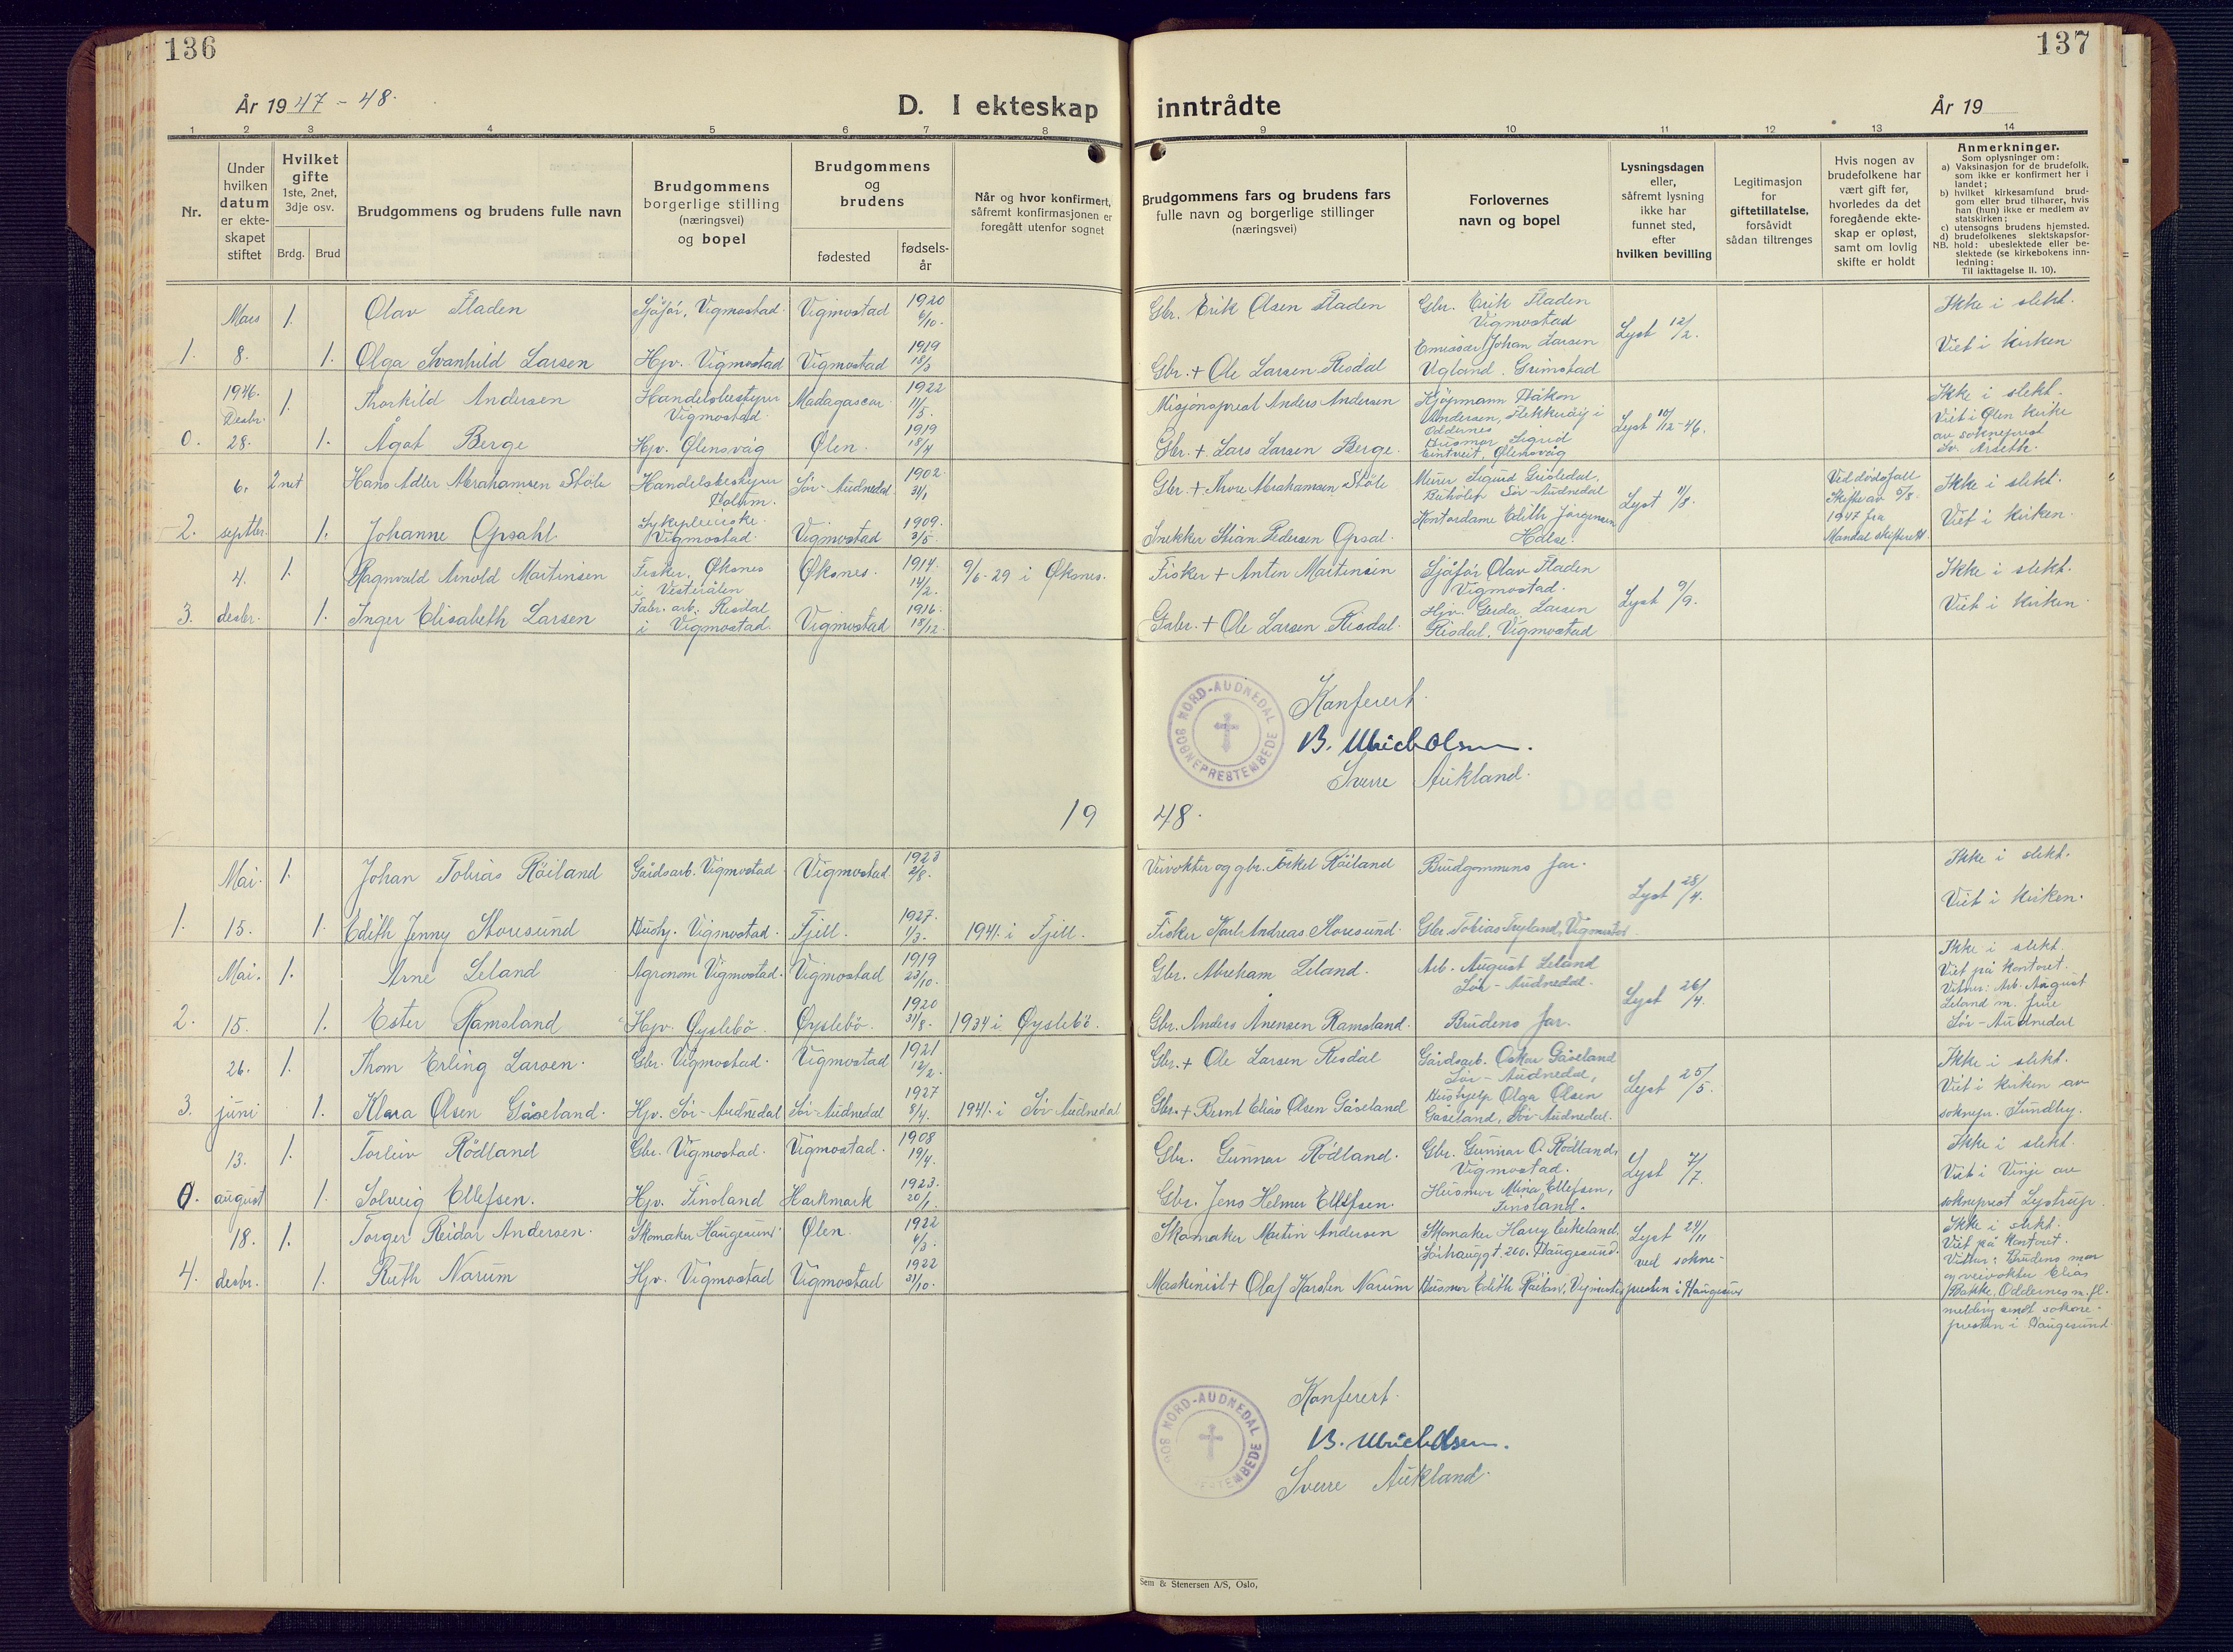 136
137
År 1947 - 48.
D. I ekteskap inntrådte
År 19
1 2 3 4 5 6 7 8 9 10 11 12 13 14
Nr.
Under hvilken datum er ekteskapet stiftet
Hvilket gifte
1ste, 2net, 3dje osv.
Brdg. Brud
Brudgommens og brudens fulle navn
Brudgommens borgerlige stilling (næringsvei) og bopel
Brudgommens og brudens
fødested
fødsels-år
Når og hvor konfirmert, såfremt konfirmasjonen er foregått utenfor sognet
Brudgommens fars og brudens fars fulle navn og borgerlige stillinger (næringsvei)
Forlovernes navn og bopel
Lysningsdagen eller, såfremt lysning ikke har funnet sted, efter hvilken bevilling
Legitimasjon for giftetillatelse, forsåvidt sådan tiltrenges
Hvis nogen av brudefolkene har vært gift før, hvorledes da det foregående ekteskap er opløst, samt om lovlig skifte er holdt
Anmerkninger.
Som oplysninger om:
a) Vaksinasjon for de brudefolk, som ikke er konfirmert her i landet;
b) hvilket kirkesamfund brudgom eller brud tilhører, hvis han (hun) ikke er medlem av statskirken;
c) utensogns brudens hjemsted.
d) brudefolkenes slektskapsforhold: ubeslektede eller beslektede (se kirkebokens innledning:
NB. Til iakttagelse II. 10).
Mars 1. Olav Fladen Sjåfør, Vigmostad Vigmostad 1920 6/10. Gbr. Erik Olsen Fladen Gbr. Erik Fladen Vigmostad Lyst 12/2. Ikke i slekt.
1. 8. 1. Olga Svanhild Larsen Hjv. Vigmostad Vigmostad 1919 18/3 Gbr. + Ole Larsen Risdal Emissær Johan Larsen Vigland. Grimstad Viet i kirken
1946. Desbr. 1. Thorkild Andersen Handelsbestyrer Vigmostad. Madagascar 1922 11/5. Misjonsprest Anders Andersen Kjøpmann Håkon Andersen, Flekkerøy i Oddernes Lyst 10/12-46. Ikke i slekt. Viet i Ølen kirke
0. 28. 1. Ågot Berge Hjv. Ølensvåg Ølen. 1919 18/4 Gbr. + Lars Larsen Berge. Husmor Sigrid Eintveit, Ølensvåg av sokneprest Sv. Årseth.
6. 2net Hans Adler Abrahamsen Støle Handelsbestyrer Holum. Sør-Audnedal 1902. 31/1 Gbr. + Thore Abrahamsen Støle Murer Sigurd Sør-Audnedal Lyst 11/8. Ved dødsfall Skifte av 5/8 1947 fra Mandal skifterett. Ikke i slekt.
2. septbr. 1. Johanne Opsahl. Sykepleierske. Vigmostad. Vigmostad 1909. 3/5. Snekker Stian Pedersen Opsal. Kontordame Edith Jørgensen Holse. Viet i kirken.
4. 1. Ragnvald Arnold Martinsen Fisker, Øksnes i Vesterålen Øksnes. 1914. 14/2. 9/6-29 i Øksnes. Fisker + Anton Martinsen Sjåfør Olav Fladen Vigmostad. Lyst 9/9. Ikke i slekt.
3. desbr. 1. Inger Elisabeth Larsen Fabr. arb. Risdal i Vigmostad. Vigmostad 1916. 18/12. Gbr. + Ole Larsen Risdal. Hjv. Gerda Larsen Risdal. Vigmostad Viet i kirken.
NORD-AUDNEDAL SOGNEPRESTEMBEDE
Konferert.
B. Ulrich Olsen.
Sverre Aukland.
1948.
Mai. 1. Johan Tobias Røiland Gårdsarb. Vigmostad Vigmostad 1923 2/8. Veivokter og gbr. Torkel Røiland Brudgommens far. Lyst 28/4. Ikke i slekt.
1. 15. 1. Edith Jenny Storesund Hushj. Vigmostad. Fjell. 1927. 1/3. 1941. i Fjell. Fisker Karl Andreas Storesund. Gbr. Tobias Tryland, Vigmostad Viet i kirken.
Mai. 1. Arne Leland Agronom Vigmostad. Vigmostad 1919 23/10. Gbr. Abraham Leland. Arb. August Leland Sør-Audnedal. Lyst 26/4. Ikke i slekt. Viet på kontoret. Vitner: Arb. August
2. 15. 1. Ester Ramsland Hjv. Øyslebø. Øyslebø. 1920 31/8. 1934 i Øyslebø. Gbr. Anders Ånensen Ramsland. Brudens far. Leland m. frue Sør-Audnedal
26. 1. Thom Erling Larsen. Gbr. Vigmostad. Vigmostad 1921 12/2. Gbr. + Ole Larsen Risdal Gårdsarb. Oskar Gåseland Sør-Audnedal, Lyst 25/5. Ikke i slekt. Viet i kirken av
3. juni 1. Klara Olsen Gåseland. Hjv. Sør-Audnedal Sør-Audnedal 1927 8/4. 1941. i Sør-Audnedal Gbr. + Bernt Elias Olsen Gåseland Hushjelp Olga Olsen Gåseland, Sør-Audnedal. soknepr. Sundby.
13. 1. Torleiv Rødland Gbr. Vigmostad. Vigmostad. 1908 19/4. Gbr. Gunnar Rødland. Gbr. Gunnar O. Rødland, Vigmostad. Lyst 7/7. Ikke i slekt. Viet i Vinje av
0. august 1. Solveig Ellefsen. Hjv. Finsland Harkmark 1923. 20/1. Gbr. Jens Helmer Ellefsen. Husmor Mina Ellefsen, Finsland. sokneprest Lystrup.
18. 1. Torger Reidar Andersen. Skomaker Haugesund Ølen. 1922 4/3. Skomaker Martin Andersen Skomaker Harry Eikeland, Sørhauggt. 260. Haugesund. Lyst 24/11 ved sokne- Ikke i slekt. Viet på kontoret. Vitner: Brudens mor
4. desbr. 1. Ruth Narum Hjv. Vigmostad Vigmostad 1922 31/10. Maskinist + Olaf Karsten Narum Husmor Edith Vigmostad presten i Haugesund og veivokter Elias Bakke, Oddernes m. fl.
melding sendt sokne-
presten i Haugesund.
NORD-AUDNEDAL
Konferert.
B. Ulrich Olsen.
Sverre Aukland.
Sem & Stenersen A/S, Oslo,